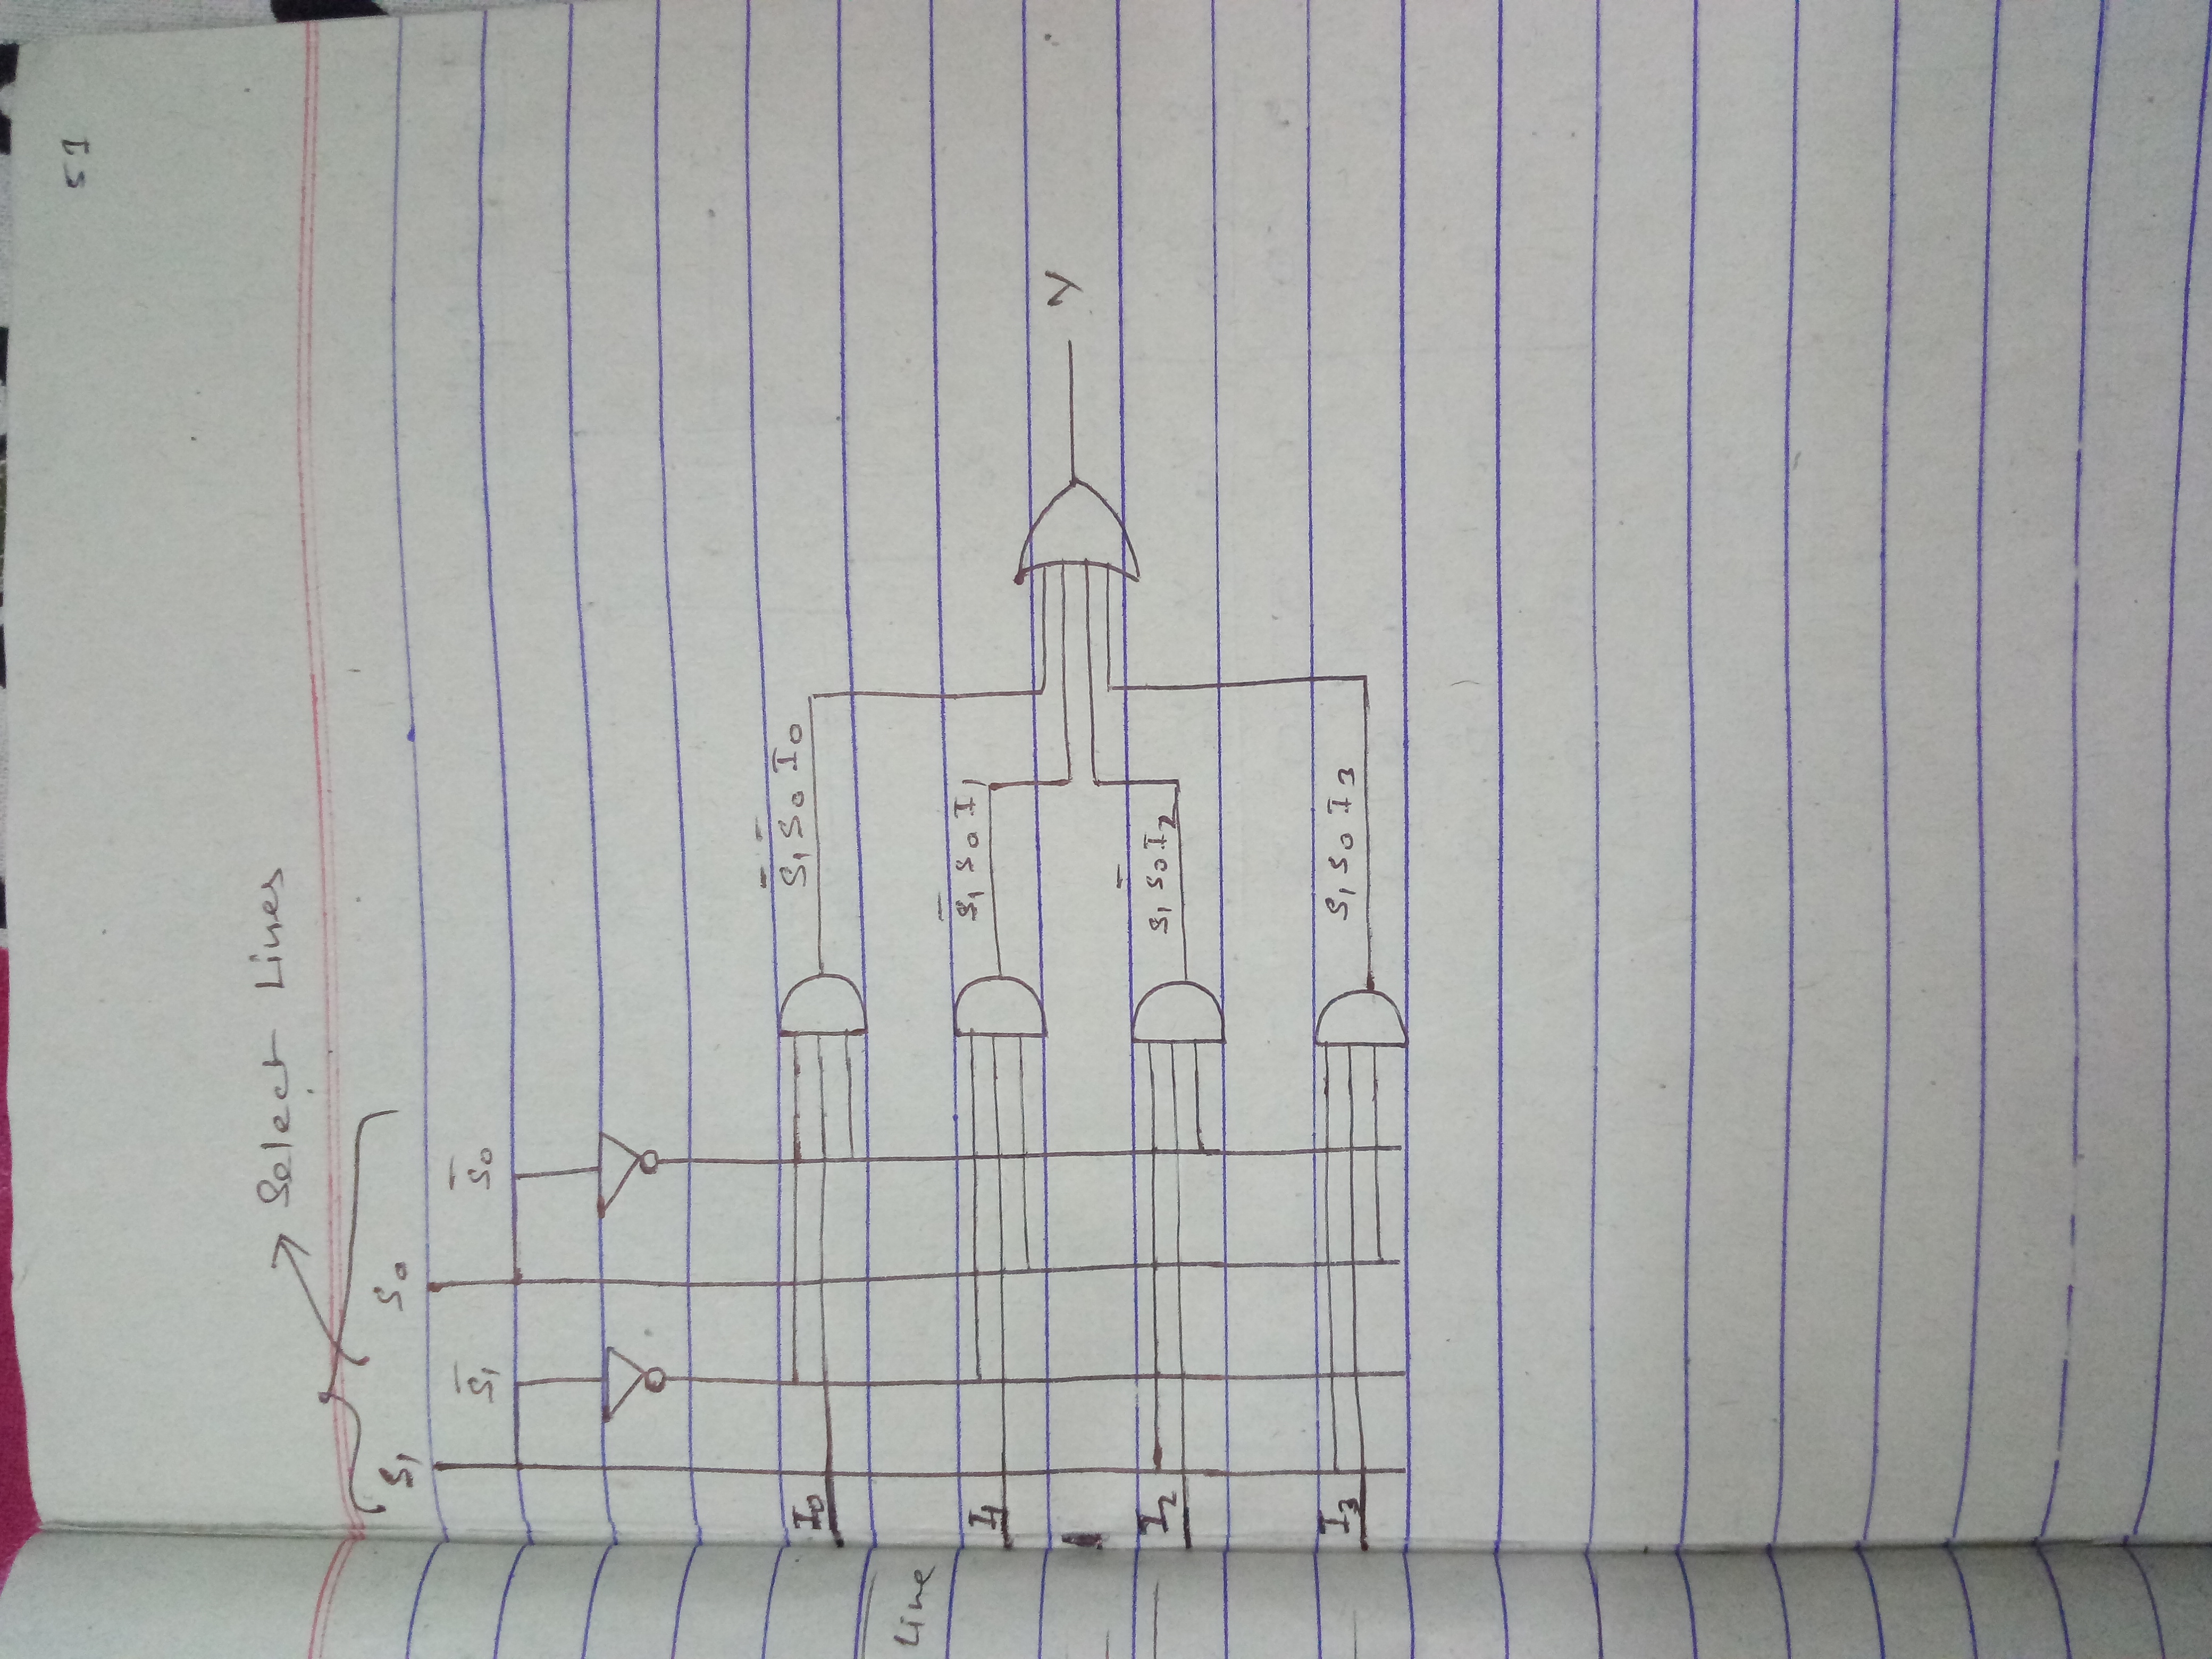 51
Select Lines
S₁ S₀
S̅₁ S̅₀
I₀ S̅₁ S̅₀ I₀
Line
I₁ S̅₁ S₀ I₁
Y
I₂ S₁ S̅₀ I₂
I₃ S₁ S₀ I₃